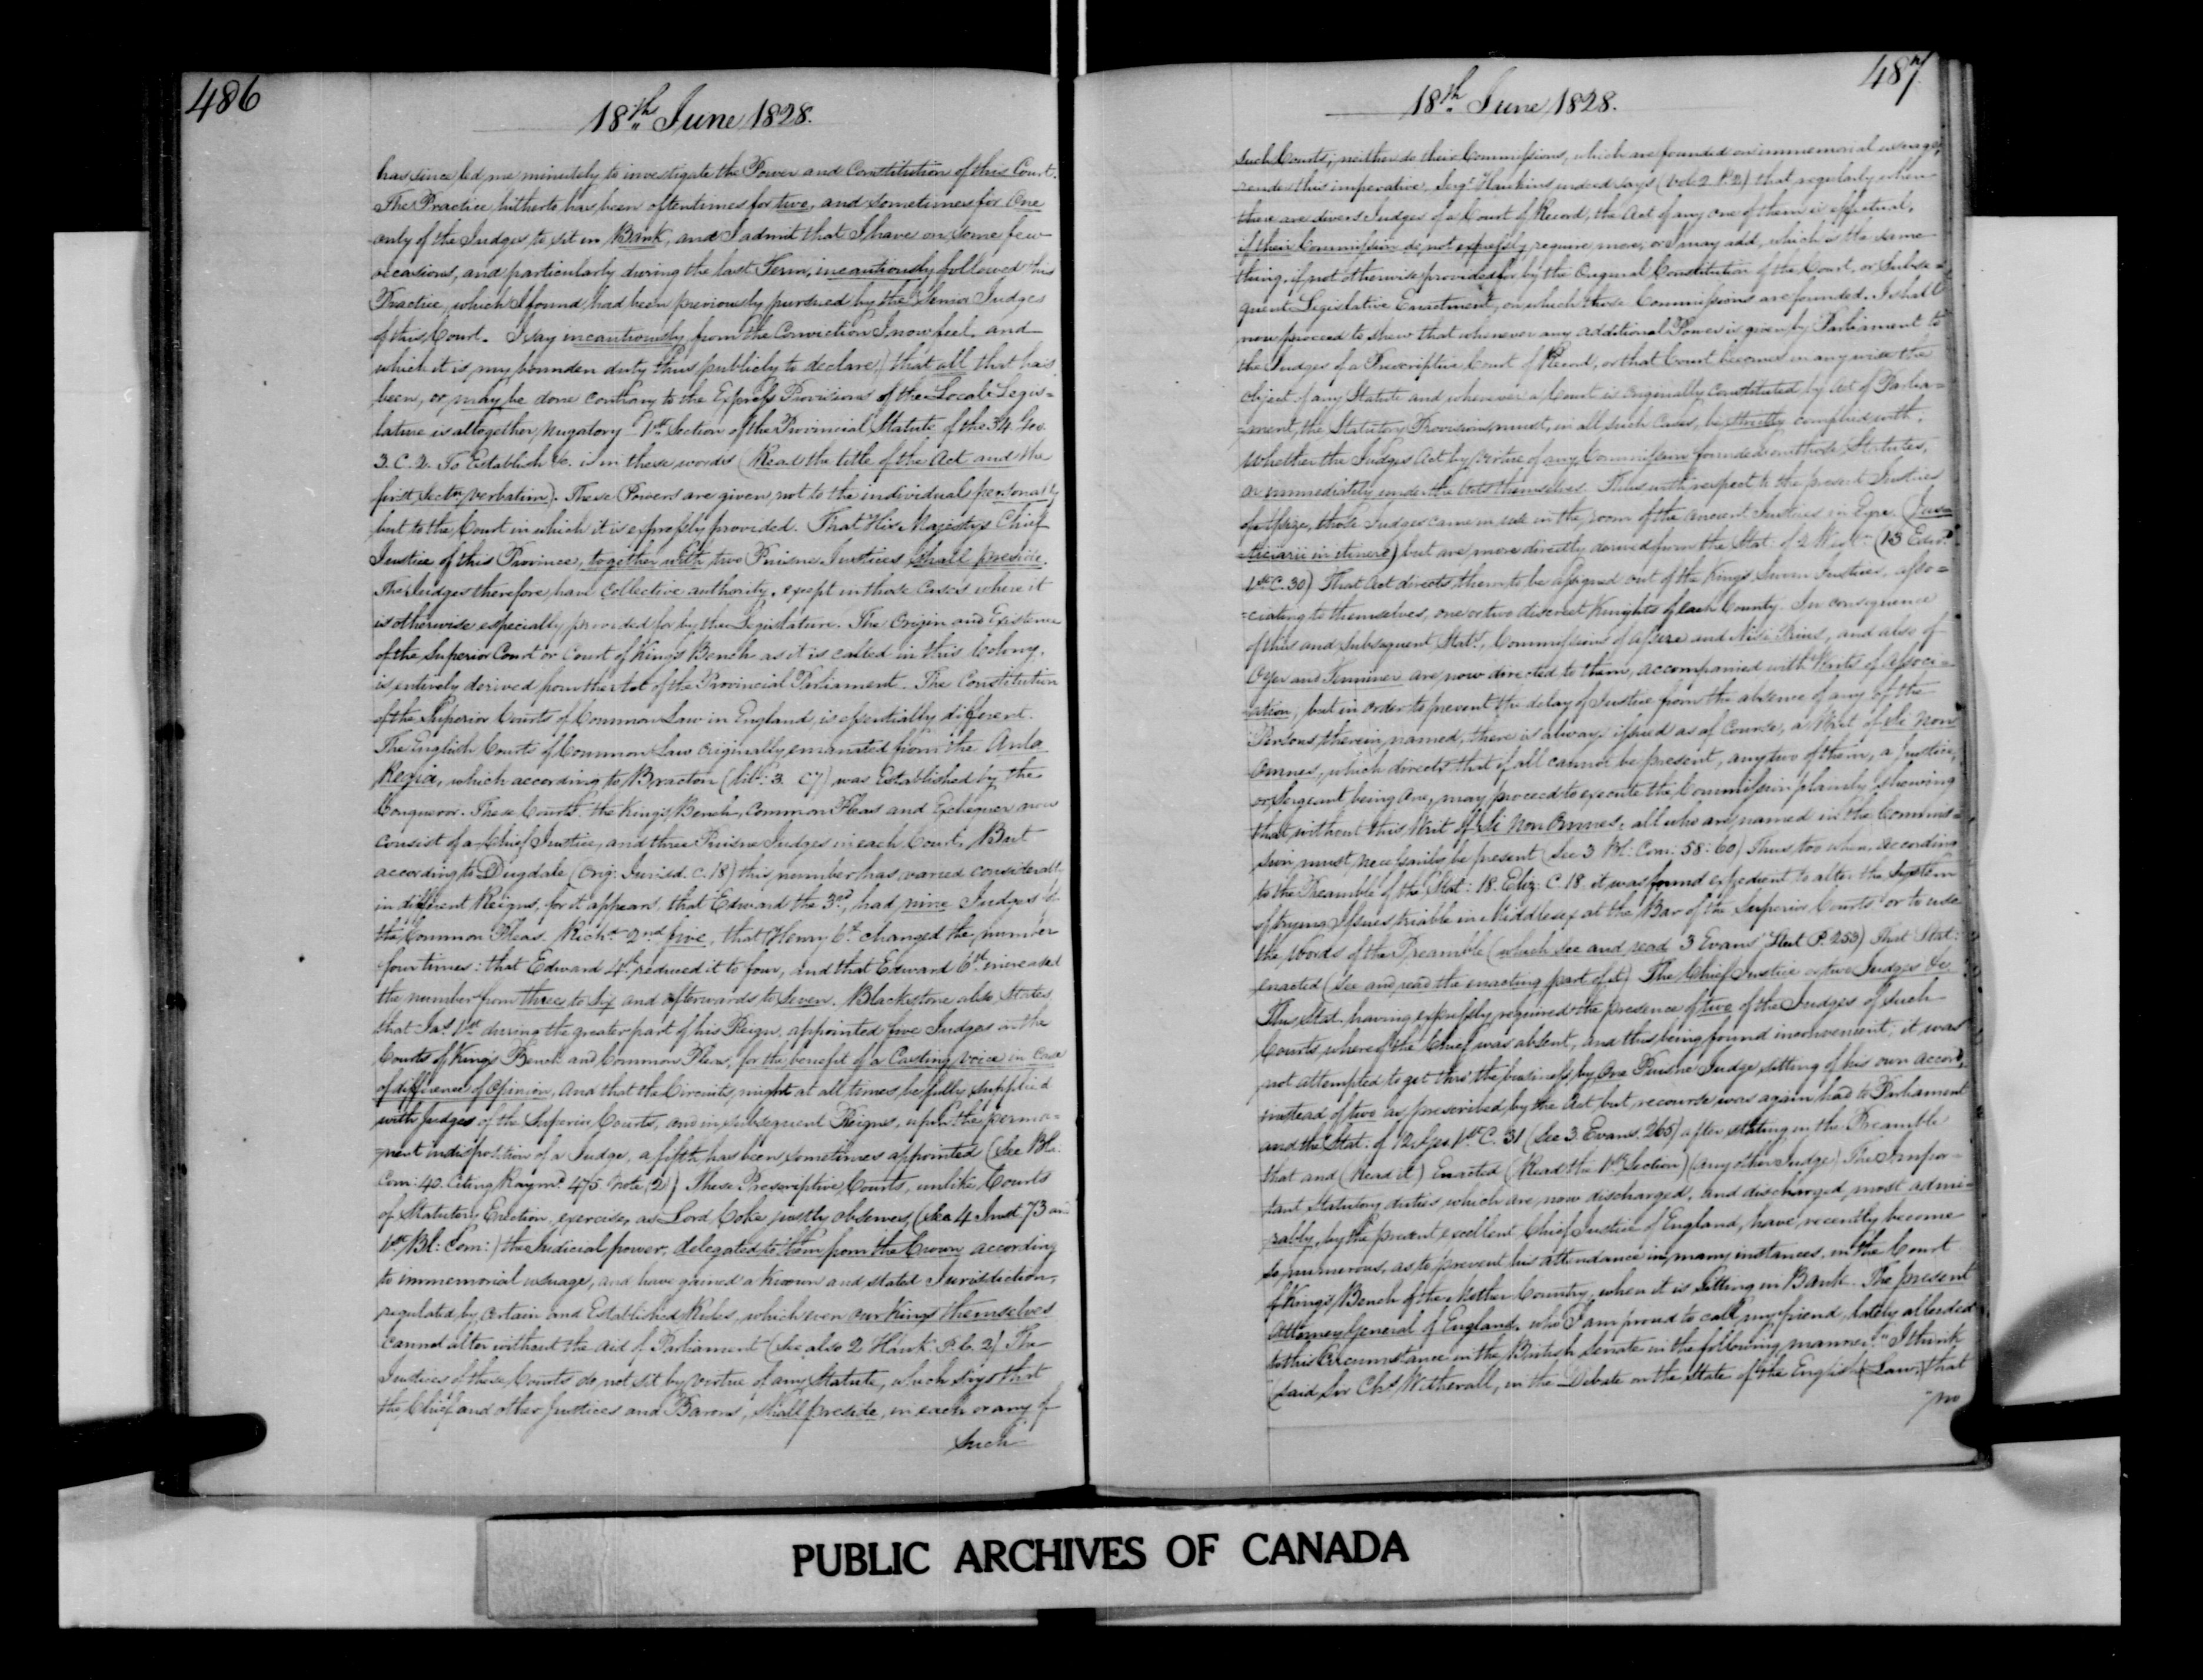 486
18th June 1828.
has since led me minutely to investigate the Power and Constitution of this Court.
The Practice hitherto has been oftentimes for two, and sometimes for One
only of the Judges to sit in Bank, and I admit that I have on some few
occasions, and particularly during the last Term, incautiously followed this
Practice, which I found had been previously pursued by the Senior Judges
of this Court. I say incautiously, from the Conviction I now feel, and
which it is my bounden duty thus publicly to declare, that all that has
been, or may be done contrary to the Express Provisions of the Local Legis=
lature is altogether nugatory 1st Section of the Provincial Statute of the 34 Geo.
3. C. 2. To Establish &c. is in these words (Read the title of the Act and the
first Sectn verbatim). These Powers are given, not to the individuals personally
but to the Court in which it is expressly provided. That His Majesty's Chief
Justice of this Province, together with two Puisne Justices shall preside.
The Judges therefore, have collective authority, except in those Cases where it
is otherwise especially provided for by the Legislature. The Origin and Existence
of the Superior Court or Court of King's Bench as it is called in this Colony,
is entirely derived from the Act of the Provincial Parliament. The Constitution
of the Superior Courts of Common Law in England, is essentially different.
The English Courts of Common Law originally emanated from the Aula
Regia, which according to Bracton (lib: 3. C 7) was Established by the
Conqueror. These Courts, the King's Bench, Common Pleas and Exchequer now
consist of a Chief Justice, and three Puisne Judges in each Court. But
according to Dugdale (Orig: Jurisd. C. 18) this number has varied considerably
in different Reigns, for it appears, that Edward the 3rd, had nine Judges in
the Common Pleas. Richd 2nd five, that Henry 6th changed the number
four times: that Edward 4th reduced it to four, and that Edward 6th increased
the number from three to Six and afterwards to Seven. Blackstone also States
that Jas 1st during the greater part of his Reign, appointed five Judges in the
Courts of King's Bench and Common Pleas, for the benefit of a Casting voice in case
of difference of Opinion, And that the Circuits, might at all times, be fully supplied
with Judges of the Superior Courts, and in subsequent Reigns, upon the perma=
=nent indisposition of a Judge, a fifth has been sometimes appointed (See Bla:
Com: 40. Citing Raymd 475. Note, 2) These Prescriptive Courts, unlike Courts
of Statutory Erection, exercise, as Lord Coke justly observes, (See 4 Inst 73 and
1st Bl: Com:) the Judicial power, delegated to them from the Crown according
to immemorial usuage, and have gained a known and stated Jurisdiction,
regulated by certain and Established Rules, which even our Kings themselves
cannot alter without the aid of Parliament (See also 2 Hawk: P. C. 2). The
Justices of these Courts do not sit by virtue of any Statute, which says that
the Chief and other Justices and Barons, shall preside, in each or any of
such
487
18th June 1828.
such Courts; neither do their Commissions, which are founded on immemorial usuage,
render this imperative. Sergt Hawkins indeed says (Vol. 2 P. 2) that regularly when
there are divers Judges of a Court of Record, the Act of any one of them is effectual,
if their Commission do not expressly require more; or I may add, which is the same
thing, if not otherwise provided for by the Original Constitution of the Court, or Subse=
quent Legislative Enactment, on which those Commissions are founded. I shall
now proceed to shew that whenever any additional Power is given by Parliament to
the Judges of a Prescriptive Court of Record, or that Court becomes in any wise the
object of any Statute and whenever a Court is originally constituted by Act of Parlia=
=ment, the Statutory Provisions, must, in all such Cases, be strictly complied with.
Whether the Judges Act by virtue of any Commission founded on those Statutes,
or immediately under the Acts themselves. Thus with respect to the present Justices
of Assize, those Judges came in use in the room of the ancient Justices in Eyre. (Jus=
=ticiarii in itinere) but are more directly derived from the Stat: of 2 Westr (13 Edwd
1st C. 30) That Act directs them to be assigned out of the King's Sworn Justices, asso=
=ciating to themselves, one or two discreet Knights of each County. In consequence
of this and Subsequent Stats, Commissions of Assize and Nisi Prius, and also of
Oyer and Terminer are now directed to them, accompanied with Writs of Associ=
=ation, but in order to prevent the delay of Justice from the absence of any of the
Persons therein named, there is always issued as of Course, a Writ of Si non
Omnes, which directs that if all cannot be present, any two of them, a Justice,
or Sergeant being One, may proceed to execute the Commission plainly shewing
that, without this Writ of Si Non Omnes, all who are named in the Commis=
sion, must, necessarily be present (See 3 Bl: Com: 58: 60) Thus too when, according
to the Preamble of the Stat: 18. Eliz: C. 18. it was found expedient to alter the System
of trying Issues triable in Middlesex at the Bar of the Superior Courts or to use
the words of the Preamble (which see and read 3 Evans' Stat P. 253) that Stat:
enacted (See and read the enacting part of it) The Chief Justice or two Judges &c
This Stat. having expressly required the presence of two of the Judges of such
Courts, where if the Chief was absent, and this being found inconvenient; it was
not attempted to get thro' the business, by One Puisne Judge, sitting of his own accord,
instead of two as prescribed by the Act, but, recourse was again had to Parliament
and the Stat. of 12 Geo. 1st C. 31 (See 3. Evans. 265) after stating in the Preamble
that and (Read it) Enacted (Read the 1st Section) (Any other Judge) The Impor=
tant Statutory duties which are now discharged, and discharged most admi=
=rably, by the present excellent Chief Justice of England, have recently become
so numerous, as to prevent his attendance in many instances, in the Court
of King's Bench of the Mother Country, when it is Sitting in Bank. The present
Attorney General of England, who I am proud to call my friend, lately alluded
to this Circumstance in the British Senate in the following manner: "I think
(said Sir Chs Witherall, in the Debate on the State of the English Law,) that
"no
PUBLIC ARCHIVES OF CANADA